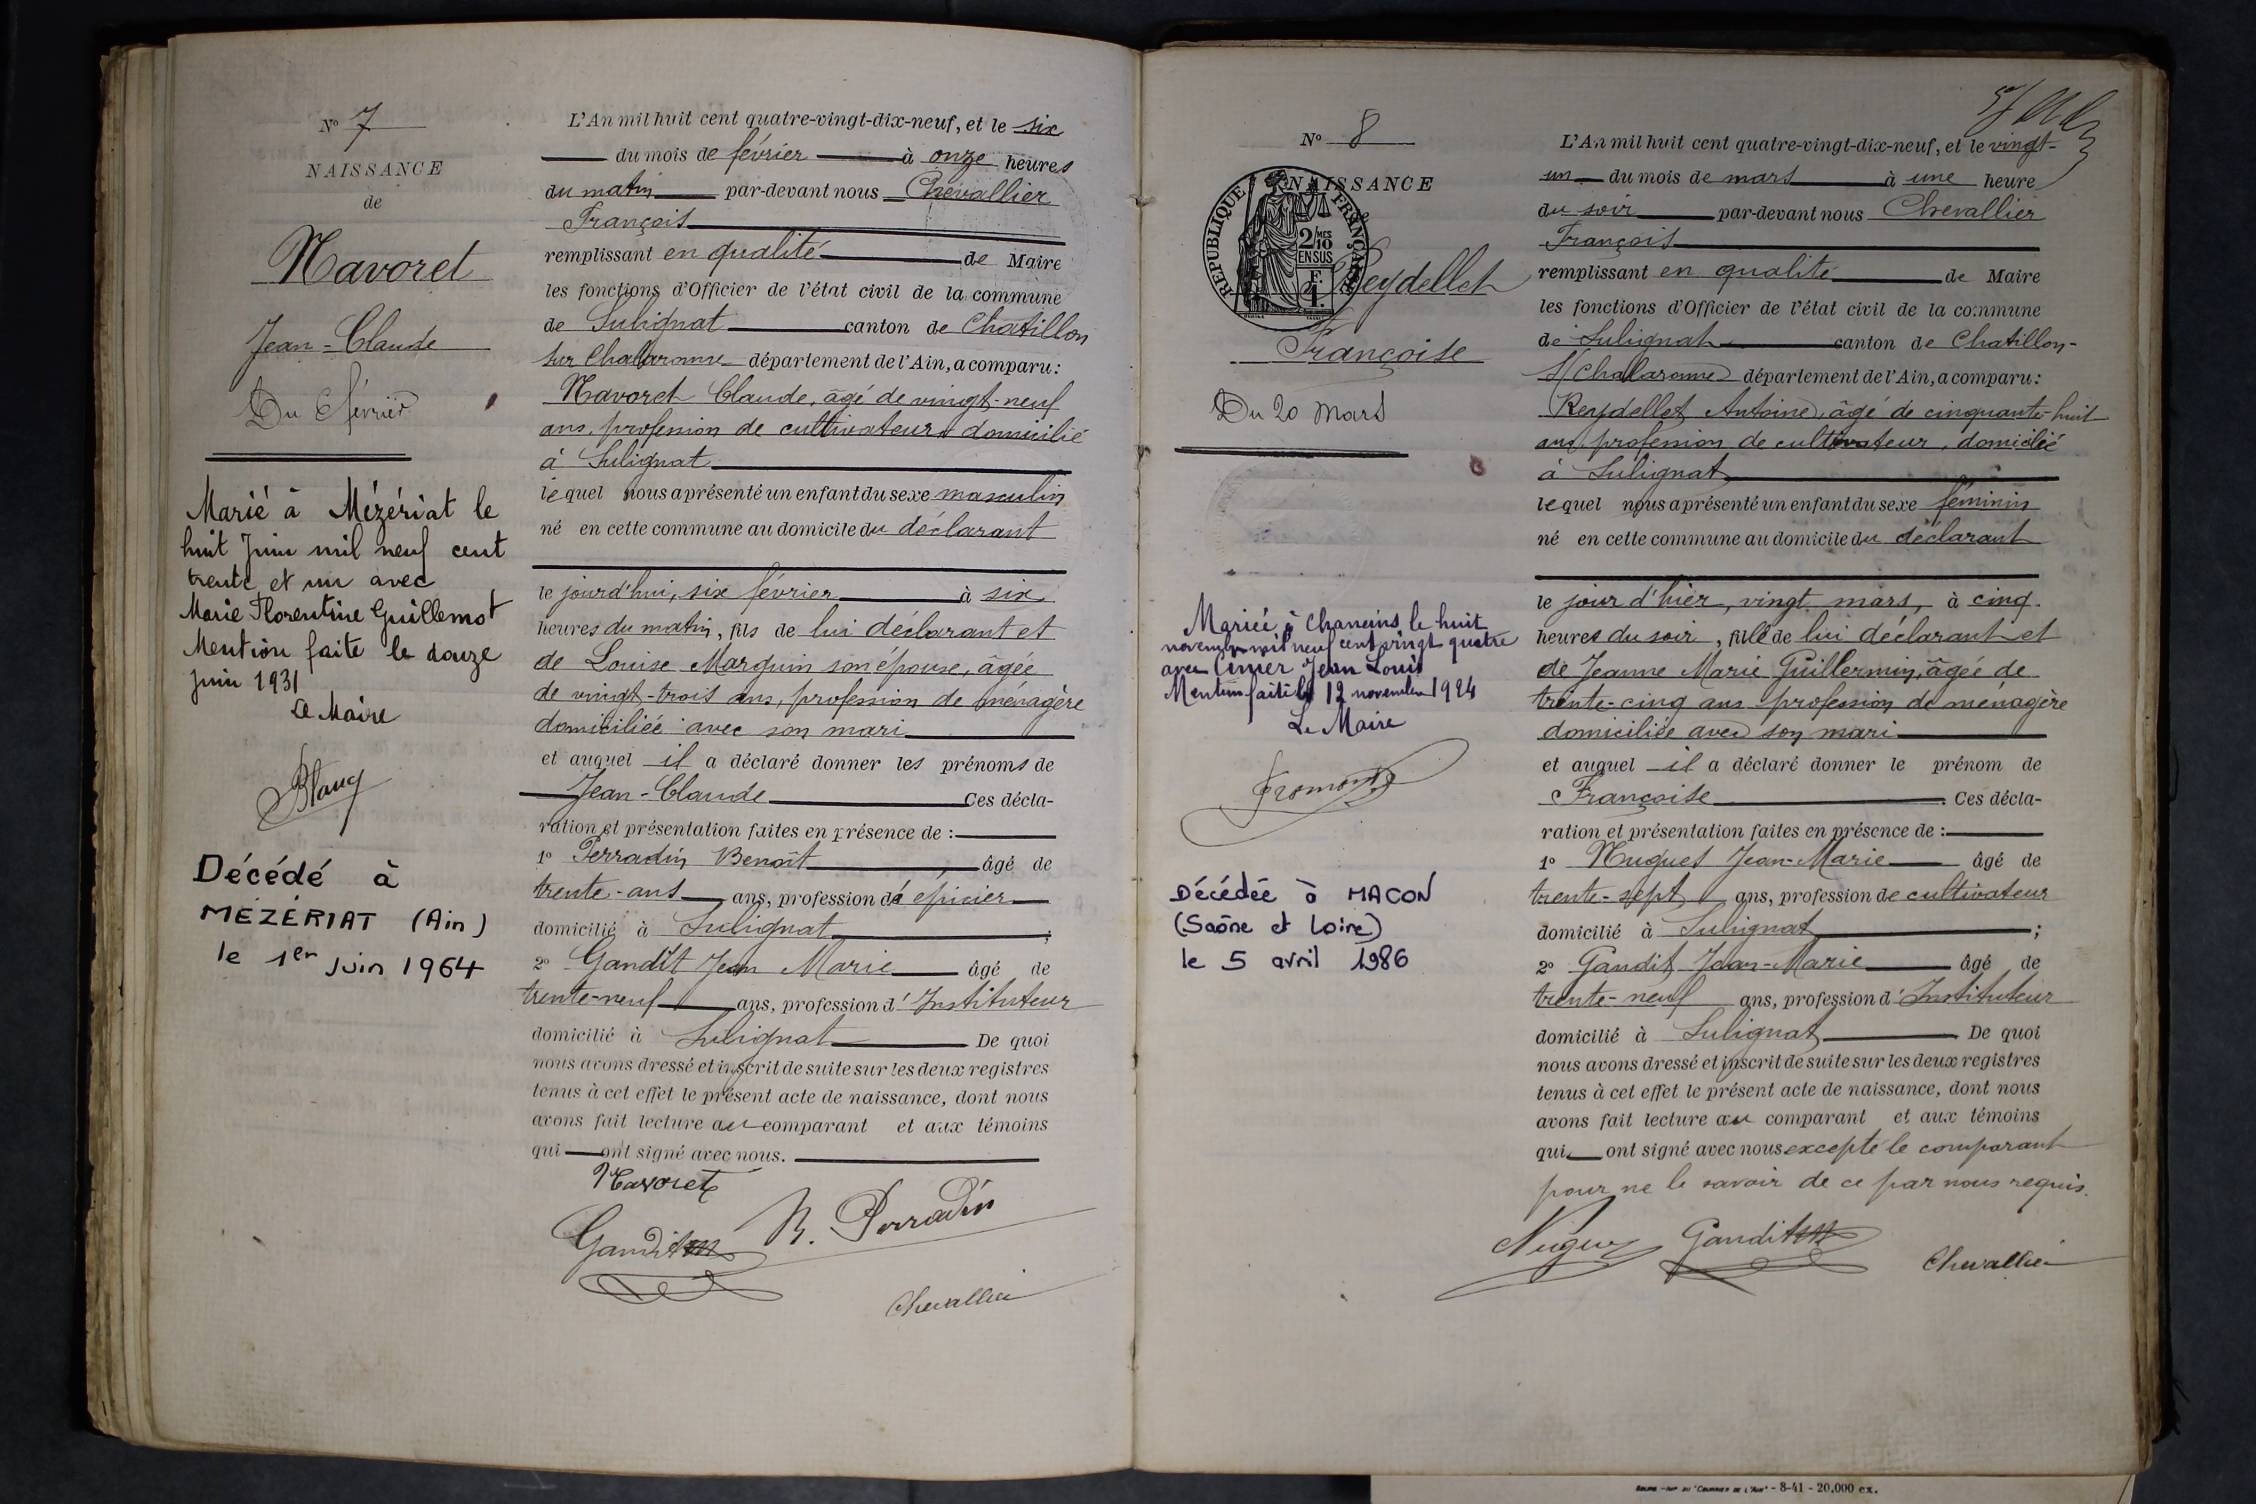 Nº 7
NAISSANCE
de
Navoret
Jean-Claude
Du 6 février
Marié à Mézériat le
huit Juin mil neuf cent
trente et un avec
Marie Florentine Guillemot
Mention faite le douze
juin 1931
Le Maire
Décédé à
MÉZÉRIAT (Ain)
le 1er Juin 1964
L'An mil huit cent quatre-vingt-dix-neuf, et le six
du mois de février à onze heures
du matin par-devant nous Chevallier
François
remplissant en qualité de Maire
les fonctions d'Officier de l'état civil de la commune
de Sulignat canton de Chatillon
sur Chalaronne département de l'Ain, a comparu :
Navoret Claude, âgé de vingt-neuf
ans, profession de cultivateur domicilié
à Sulignat
lequel nous a présenté un enfant du sexe masculin
né en cette commune au domicile du déclarant
le jourd'hui, six février à six
heures du matin, fils de lui déclarant et
de Louise Marguin son épouse, âgée
de vingt-trois ans, profession de ménagère
domiciliée avec son mari
et auquel il a déclaré donner les prénoms de
Jean-Claude Ces décla-
ration et présentation faites en présence de :
1º Perradin Benoît âgé de
trente-ans ans, profession d'épicier
domicilié à Sulignat ;
2º Gandit Jean Marie âgé de
trente-neuf ans, profession d'Instituteur
domicilié à Sulignat De quoi
nous avons dressé et inscrit de suite sur les deux registres
tenus à cet effet le présent acte de naissance, dont nous
avons fait lecture au comparant et aux témoins
qui ont signé avec nous.
Navoret
Gandit B. Perradin
Chevallier
Nº 8
NAISSANCE
REPUBLIQUE FRANÇAISE
2/10 MES
EN SUS
F.
1.
Reydellet
Françoise
Du 20 Mars
Mariée à Chaneins le huit
novembre mil neuf cent vingt quatre
avec Cimer Jean Louis
Mention faite le 12 novembre 1924
Le Maire
Fromont
Décédée à MACON
(Saône et Loire)
le 5 avril 1986
L'An mil huit cent quatre-vingt-dix-neuf, et le vingt-
un du mois de mars à une heure
du soir par-devant nous Chevallier
François
remplissant en qualité de Maire
les fonctions d'Officier de l'état civil de la commune
de Sulignat canton de Chatillon-
s/Chalaronne département de l'Ain, a comparu :
Reydellet Antoine, âgé de cinquante-huit
ans, profession de cultivateur, domicilié
à Sulignat
lequel nous a présenté un enfant du sexe féminin
né en cette commune au domicile du déclarant
le jour d'hier, vingt mars, à cinq
heures du soir, fille de lui déclarant et
de Jeanne Marie Guillermin, âgée de
trente-cinq ans profession de ménagère
domiciliée avec son mari
et auquel il a déclaré donner le prénom de
Françoise . Ces décla-
ration et présentation faites en présence de :
1º Nugues Jean-Marie âgé de
trente-sept ans, profession de cultivateur
domicilié à Sulignat ;
2º Gandit Jean-Marie âgé de
trente-neuf ans, profession d'Instituteur
domicilié à Sulignat De quoi
nous avons dressé et inscrit de suite sur les deux registres
tenus à cet effet le présent acte de naissance, dont nous
avons fait lecture au comparant et aux témoins
qui ont signé avec nous excepté le comparant
pour ne le savoir de ce par nous requis.
Nugues Gandit Chevallier
BOURG - IMP DU "COURRIER DE L'AIN" - 8-41 - 20.000 ex.